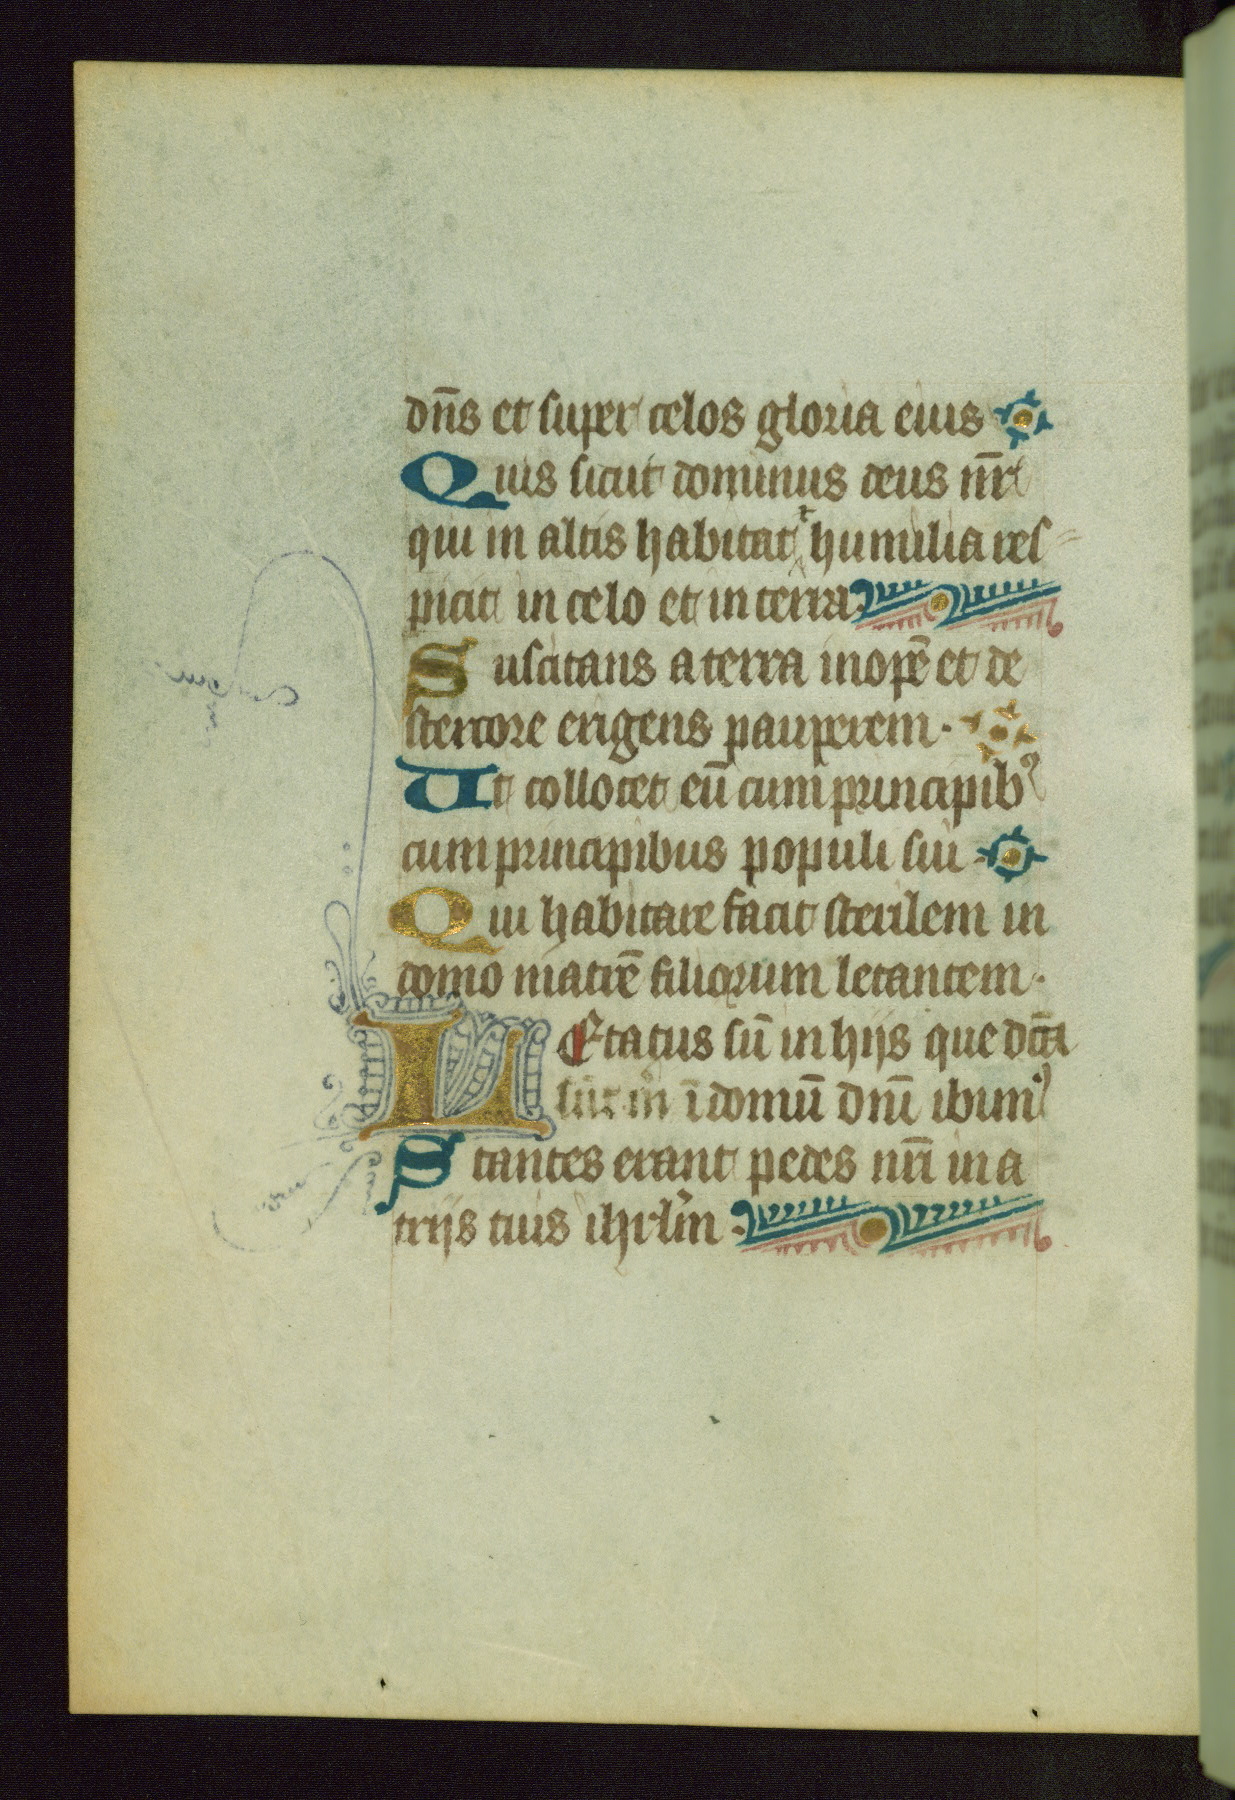 dn̄s et super celos gloria eius
Quis sicut dominus deus nr̄
qui in altis habitat ⁊ humilia res
picit in celo et in terra
Suscitans a terra inopē et de
stercore erigens pauperem.
Ut collocet eū cum principibꝰ
cum principibus populi sui
Qui habitare facit sterilem in
domo matrē filiorum letantem.
LEtatus sū in hijs que dc̄a
sūt m̄ ī domū dn̄i ibimꝰ
Stantes erant pedes nr̄i in a
trijs tuis ihrlm̄